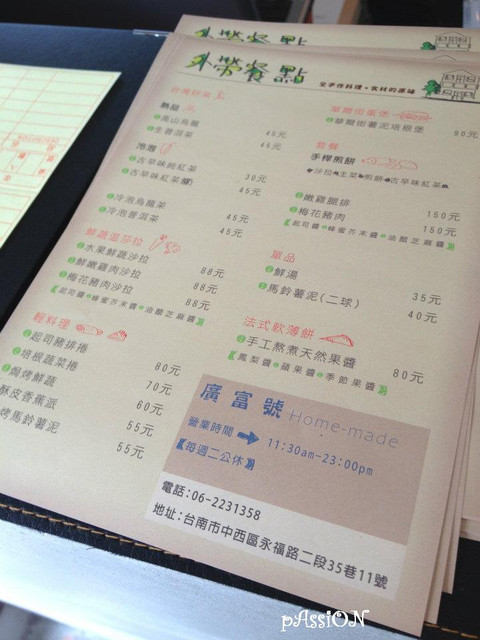 外帶餐點
外帶餐點
全手作料理·食材的原味
台灣好茶
熱品
高山烏龍 45元
生普洱茶 45元
冷泡
古早味純紅茶 30元
古早味紅茶 45元
冷泡烏龍茶 45元
冷泡普洱茶 45元
鮮蔬溫莎拉
水果鮮蔬沙拉 88元
鮮嫩雞肉沙拉 88元
梅花豬肉沙拉 88元
起司醬 蜂蜜芥末醬 油醋芝麻醬
輕料理
起司豬排捲 80元
培根蔬菜捲 70元
焗烤鮮蔬 60元
酥皮香蕉派 55元
烤馬鈴薯泥 55元
華爾街蛋堡
華爾街薯泥培根堡 90元
套餐
手桿煎餅
沙拉 生菜 煎餅 古早味紅茶
嫩雞腿排 150元
梅花豬肉 150元
起司醬 蜂蜜芥末醬 油醋芝麻醬
單品
鮮湯 35元
馬鈴薯泥(二球) 40元
法式軟薄餅
手工熬煮天然果醬 80元
鳳梨醬 蘋果醬 季節果醬
廣富號 Home-made
營業時間 11:30am-23:00pm
每週二公休
電話:06-2231358
地址:台南市中西區永福路二段35巷11號
pAssiON